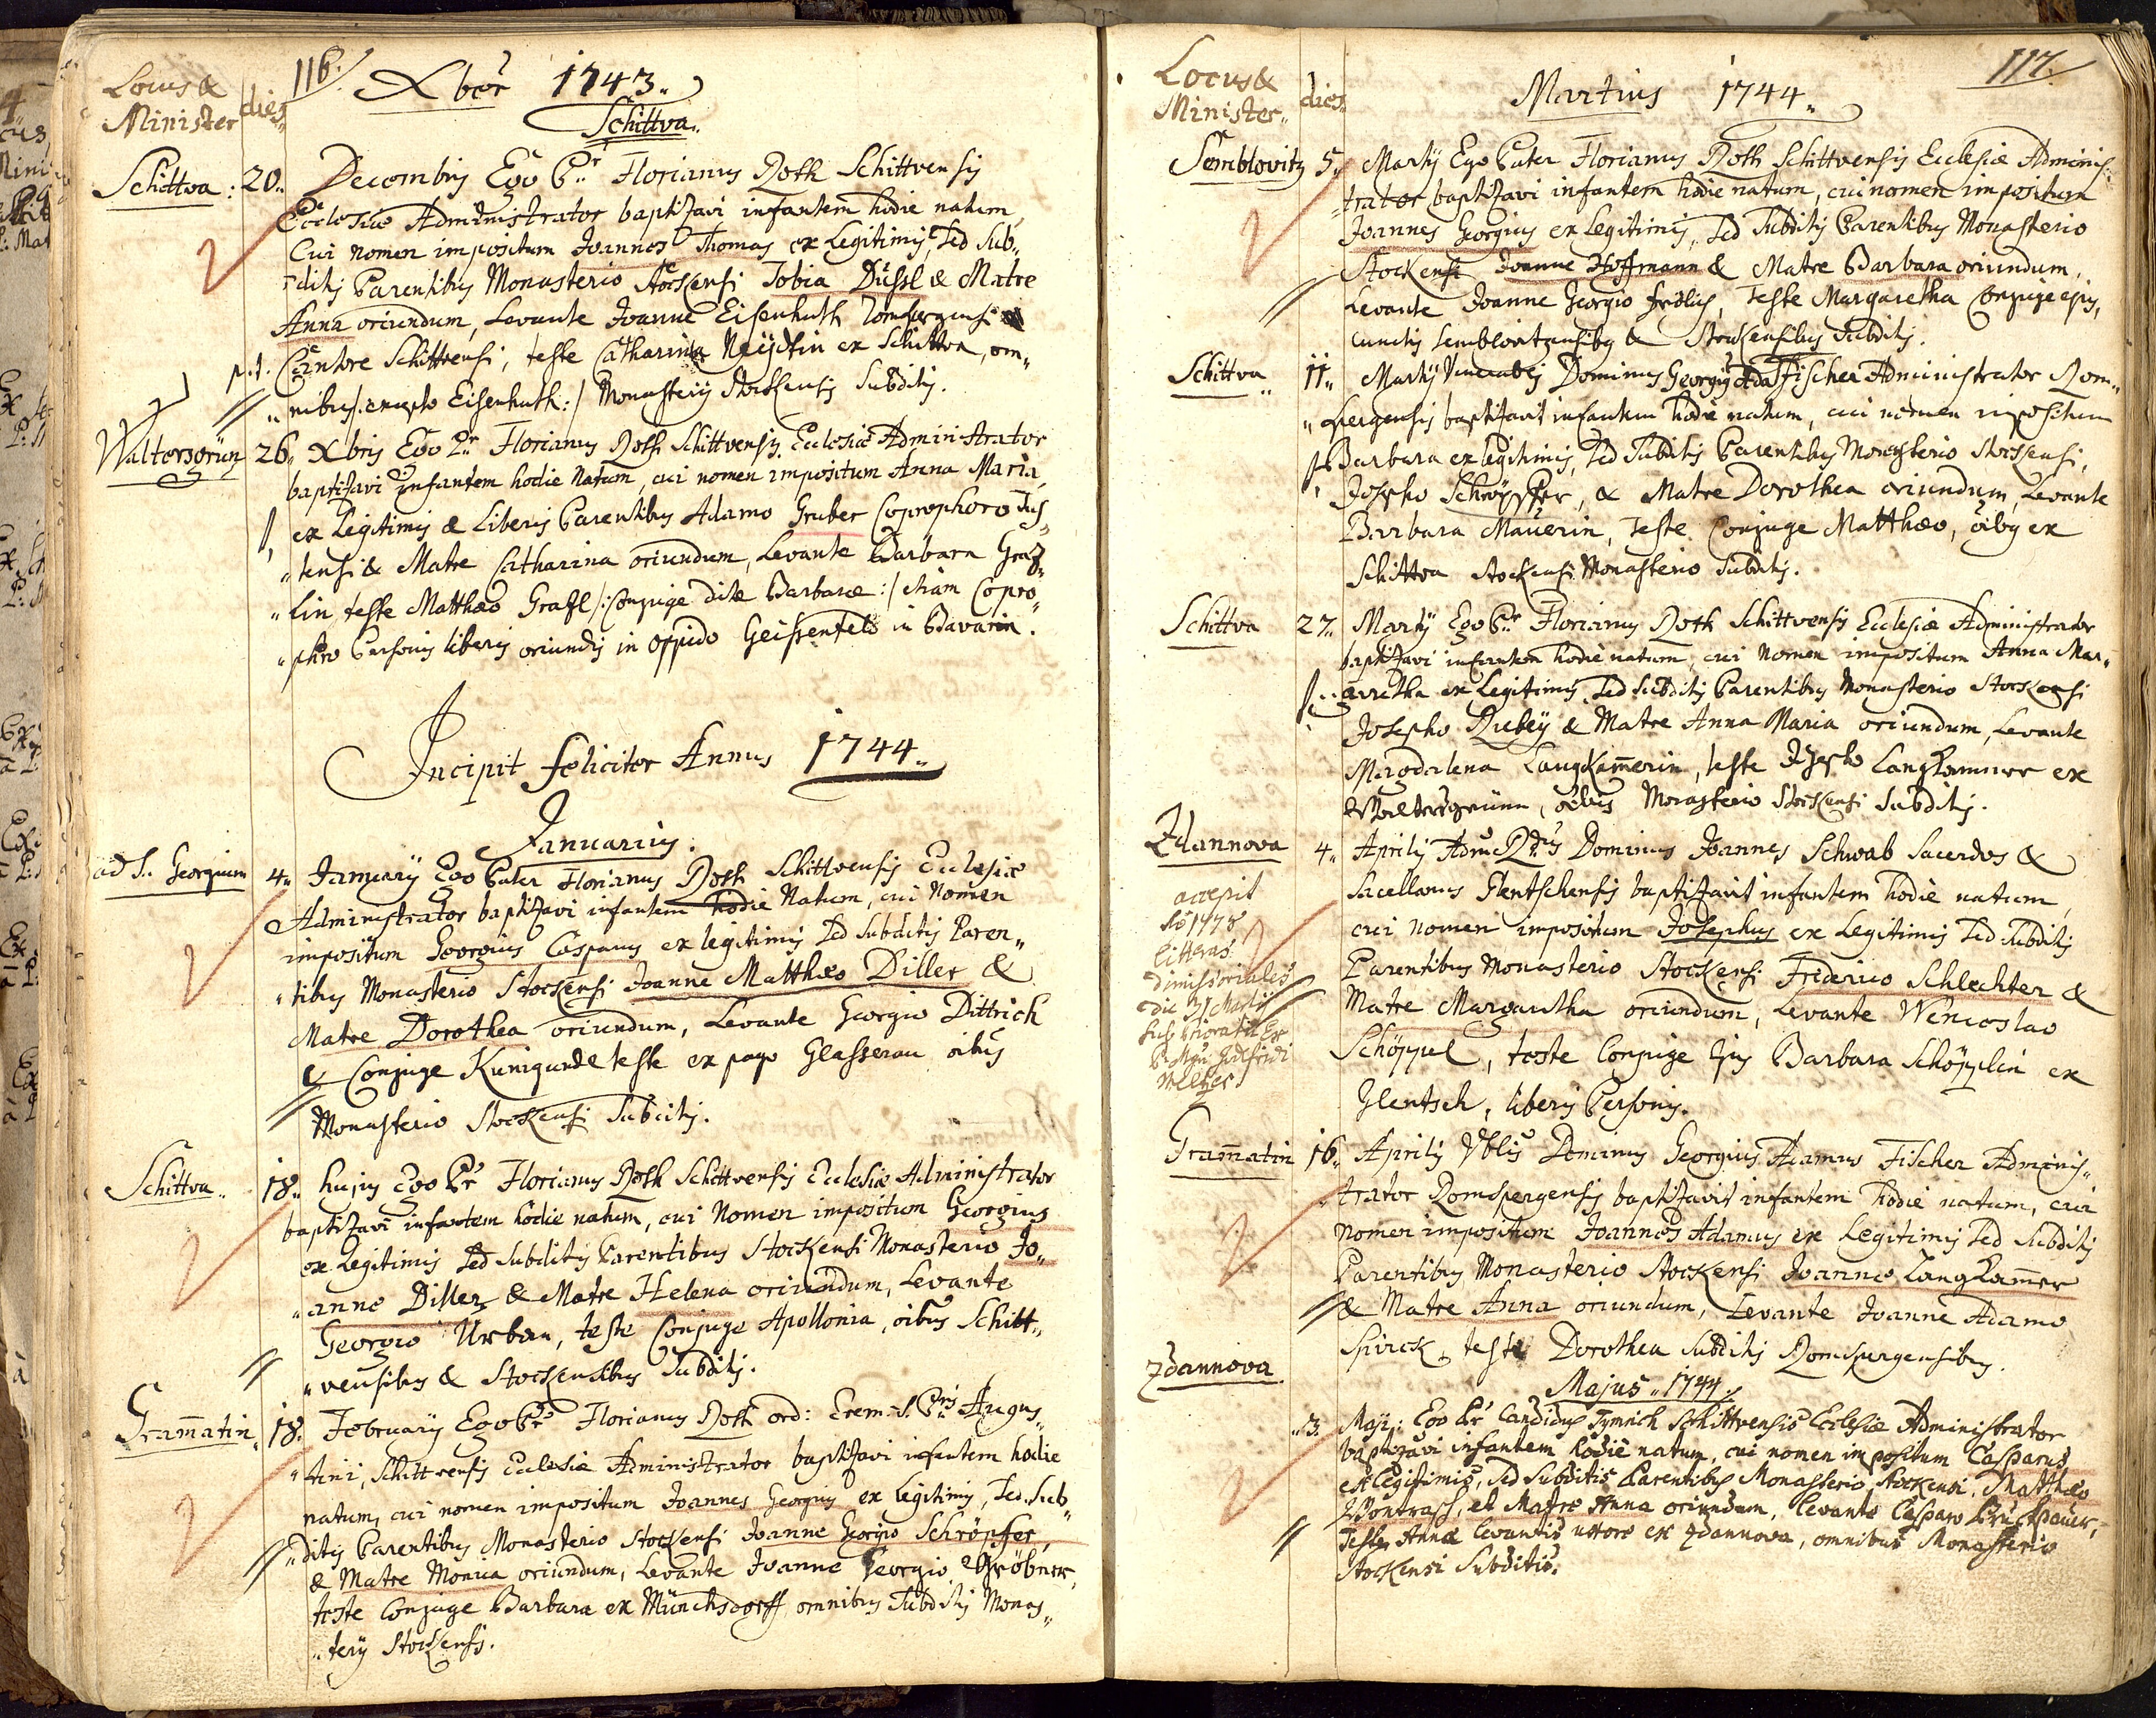 116.
Locus &
Minister
dies
Xber 1743.
Schittva.
Schittva: 20. Decembris Ego Pr Florianus Roth Schittvensis
Ecclesiæ Administrator baptizavi infantem hodie natum
Cui nomen impositum Joannes Thomas ex Legitimis, sed Sub„
ditis Parentibus Monasterio Stockensi Tobia Düssl & Matre
Anna oriundum, Levante Joanne Eisenhuth Romspergensi
p.t. Cantore Schittvensi, teste Catharina ex Schittva, om„
„nibus /: excepto Eisenhuth :/ Monasterij Stockensis Subditis.
Waltersgrün 26. Xbris Ego Pr Florianus Roth Schittvensis Ecclesiæ Administrator
baptizavi infantem hodie Natum, cui nomen impositum Anna Maria
ex Legitimis & Liberis Parentibus Adamo Gruber Coprophoro Tus„
„tensi & Matre Catharina oriundum, Levante Barbara Graf„
„lin teste Matthæo Grafl /: Conjuge dictæ Barbaræ :/ etiam Copro„
„phoro Personis liberis oriundis in oppido Geissenfeld in Bavaria.
Incipit feliciter Annus 1744.
Januarius.
ad S. Georgium 4. Januarij Ego Pater Florianus Roth Schittvensis Ecclesiæ
Administrator baptizavi infantem hodie Natum, cui Nomen
impositum Georgius Casparus ex legitimis sed subditis Paren„
„tibus Monasterio Stockensi Joanne Matthæo Diller &
Matre Dorothea oriundum, Levante Georgio Dittrich
& Conjuge Kunigunde teste ex pago Glasserau oibus
Monasterio Stockensi Subditis.
Schittva. 18. hujus Ego Pr Florianus Roth Schittvensis Ecclesiæ Administrator
baptizavi infantem hodie natum, cui Nomen impositum Georgius
ex Legitimis sed Subditis Parentibus Stockensi Monasterio Jo„
„anne Diller & Matre Helena oriundum, Levante
Georgio Urban, teste Conjuge Apollonia, oibus Schitt„
„vensibus & Stockensibus Subditis.
Gram̄atin 18. Februarij Ego Pr Florianus Roth ord: Erem: S. Pris Augus„
„tini, Schittvensis Ecclesiæ Administrator baptizavi infantem hodie
natum, cui nomen impositum Joannes Georgius ex Legitimis, sed Sub„
„ditis Parentibus Monasterio Stockensi Joanne Georgio Schröpfer
& Matre Monica oriundum, Levante Joanne Georgio Gröbner,
teste Conjuge Barbara ex Münchsdorff omnibus Subditis Monas„
„terij Stockensis.
117.
Locus &
Minister.
dies
Martius 1744.
Semblovitz 5. Martij Ego Pater Florianus Roth Schittvensis Ecclesiæ Adminis„
„trator baptizavi infantem hodie natum, cui nomen impositum
Joannes Georgius ex Legitimis, sed Subditis Parentibus Monasterio
Stockensi Joanne Hoffmann & Matre Barbara oriundum,
Levante Joanne Georgio Frölich, teste Margaretha Conjuge ejus,
cunctis Semblovitzensibus & Stockensibus Subditis.
Schittva 11. Martij Venerabilis Dominus Georgius Ada Fischer Administrator Rom„
„spergensis baptizavit infantem hodie natum, cui nomen impositum
Barbara ex legitimis, sed Subditis Parentibus Monasterio Stockensi,
Josepho Schröpffer, & Matre Dorothea oriundum, Levante
Barbara Mauerin, teste Conjuge Matthæo, oibus ex
Schittva Stockensi Monasterio Subditis.
Schittva 27. Martij Ego Pr Florianus Roth Schittvensis Ecclesiæ Administrator
baptizavi infantem hodie natum, cui Nomen impositum Anna Mar„
„garetha ex Legitimis, sed Subditis Parentibus Monasterio Stockensi
Josepho Rubey & Matre Anna Maria oriundum, Levante
Magdalena Langkam̄erin, teste Josepho Langkammer ex
Waltersgrünn, oibus Monasterio Stockensi Subditis.
Zdannova 4. Aprilis Adm Rdus Dominus Joannes Schwab Sacerdos &
Sacellanus Glentschensis baptizavit infantem hodie natum,
cui nomen impositum Josephus ex Legitimis sed Subditis
Parentibus Monasterio Stockensi Frederico Schlechter &
Matre Margaretha oriundum, Levante Wenceslao
Schöppel, teste Conjuge ejus Barbara Schöpplin ex
Glentsch, liberis Personis.
accepit
1778
litteras
dimissoriales
die 31 Martij
sub Prioratu
Godefridi
Meltzer
Gram̄atin 16. Aprilis Vblis Dominus Georgius Adamus Fischer Adminis„
„trator Romspergensis baptizavit infantem hodie natum, cui
nomen impositum Joannes Adamus ex Legitimis sed Subditis
Parentibus Monasterio Stockensi Joanne Langkam̄er
& Matre Anna oriundum, Levante Joanne Adamo
Spirck, teste Dorothea Subditis Romspergensibus.
Zdannova
Majus 1744.
3. Maji: Ego Pr Candidus Tymich Schittvensis Ecclesiæ Administrator
baptizavi infantem hodie natum, cui nomen impositum Casparus
ex Legitimis, sed Subditis Parentibus Monasterio Stockensi, Matthæo
Wontrasch, et Matre Anna oriundum, Levante Casparo Bruckbauer,
Teste Anna levantis uxore ex Zdannova, omnibus Monasterio
Stockensi Subditis.